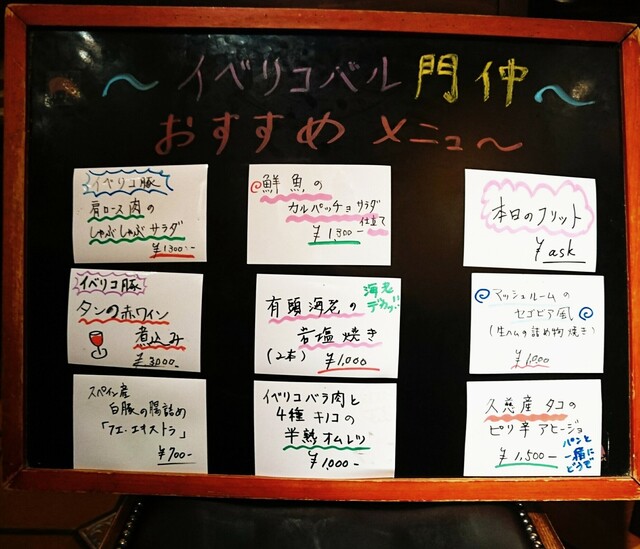 ～イベリコバル 門仲～
おすすめ メニュ～
イベリコ豚
肩ロース肉の
しゃぶしゃぶサラダ
¥1,300-
鮮魚の
カルパッチョ サラダ
仕立て
¥1,300-
本日のフリット
¥ask
イベリコ豚
タンの赤ワイン
煮込み
¥3,000-
海老
デカッ!!
有頭海老の
岩塩焼き
(2本) ¥1,000
マッシュルームの
セゴビア風
(生ハムの詰め物焼き)
¥1,000
スペイン産
白豚の腸詰め
「フエ・エキストラ」
¥700-
イベリコバラ肉と
4種キノコの
半熟オムレツ
¥1,000-
久慈産タコの
ピリ辛アヒージョ
¥1,500-
パンと
一緒に
どうぞ